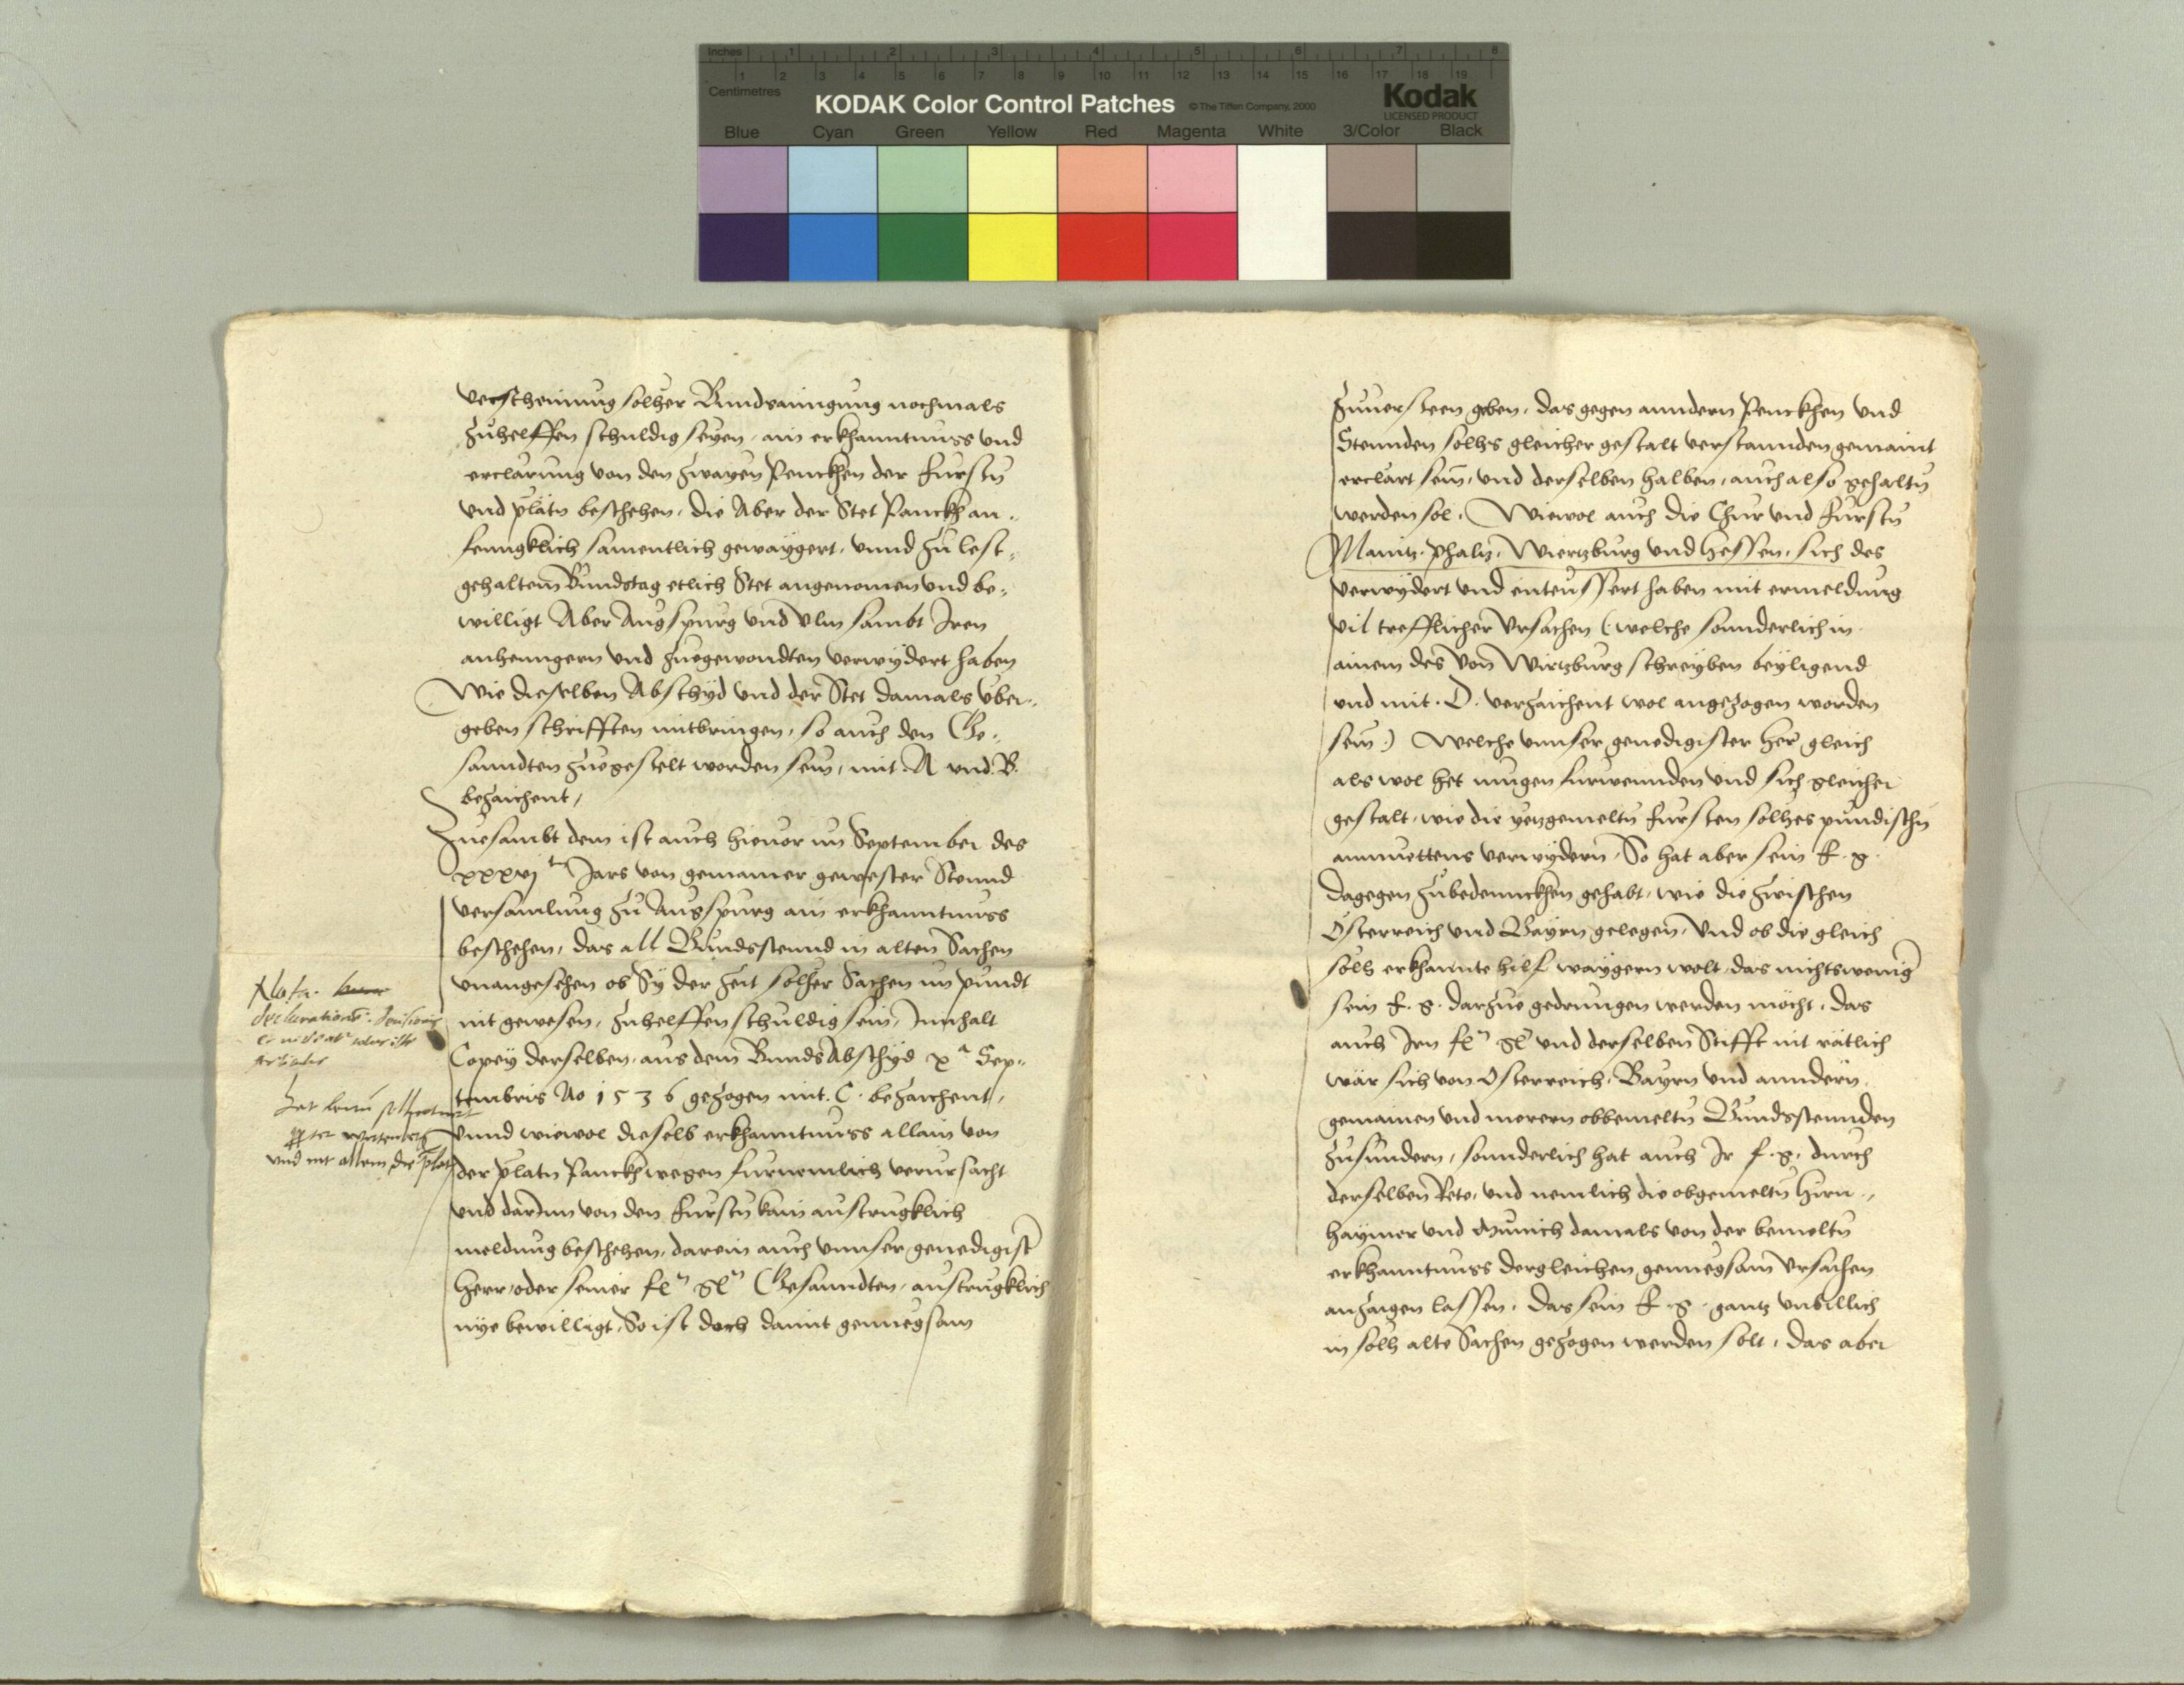 Inches 1 2 3 4 5 6 7 8
1 2 3 4 5 6 7 8 9 10 11 12 13 14 15 16 17 18 19
Centimetres
KODAK Color Control Patches © The Tiffen Company, 2000 Kodak
LICENSED PRODUCT
Blue Cyan Green Yellow Red Magenta White 3/Color Black
verscheinung solher Bundsainigung nochmals
zuhelffen schuldig seyen, ain erkhanntnuss und
erclarung von den zwayen Penckhen der Furstn
und plätn beschehen, die Aber der Stet Panckh an,,
fenngklich samentlich gewaygert, unnd zu lest,,
gehaltem Bundstag etlich Stet angenomen und be,,
willigt Aber Augspurg und Ulm sambt Iren
anhenngern und zuegewondten verwydert haben
Wie dieselben Abschyd und der Stet damals uber,,
geben schrifften mitbringen, so auch den Ge,,
sanndten zuegestelt worden sein, mit A und B.
bezaichent,
Zuesambt dem ist auch hievor im September des
xxxvj Jars von gemainer gewester Stennd
versamlung zu Augspurg ain erkhanntnuss
beschehen, das all Bundsstennd in alten Sachen
unangesehen ob Sy der zeit solher Sachen im pundt
nit gewesen, zuhelffen schuldig sein, Innhalt
Copey derselben, aus dem BundsAbschyd x Sep,,
tembris Ao 1536 gezogen mit. C. bezaichent,
unnd wiewol dieselb erkhanntnuss allain von
der platn Panckh wegen furnemlich verursacht
und darinn von den Furstn kain austrugklich
meldung beschehen, darein auch unnser genedigist
Herr, oder seiner fln gln Gesanndten, austrugklich
nye bewilligt, So ist doch damit genuegsam
Nota.
und nit allein die plat
zuversteen geben, das gegen anndern Penckhen und
Stennden solhs gleicher gestalt verstannden gemaint
erclart sein, und derselben halben, auch also gehaltn
werden sol. Wiewol auch die Chur und Furstn
Maintz, Phaltz, Wiertzburg und Hessen, sich des
verwydert und enteussert haben mit ermeldung
vil trefflicher Ursachen (welche sonnderlich in
ainem des von Wirtzburg schreyben beyligend
und mit. D. verzaichent wol angezogen worden
sein) Welche unnser genedigister Her gleich
als wol het mugen furwennden und sich gleicher
gestalt, wie die yetzgemeltn Fursten solhes pundischn
anmuettens verwydern, So hat aber sein F. g.
dagegen zubedennckhen gehabt, wie die zwischen
Osterreich und Bayrn gelegen, Und ob die gleich
solh erkhannte hilf waygern wolt, das nichtswenig
sein F. g. darzue gedrungen werden möcht, das
auch Irn fln gln und derselben Stifft nit rätlich
wär sich von Osterreich, Bayrn und anndern
gemainen und merern obbemeltn Bundsstennden
zusundern, sonnderlich hat auch Ir f. g. durch
derselben Rete, und nemlich die obgemeltn Hirn,,
haymer und Munich damals von der bemeltn
erkhanntnuss dergleichen genuegsam Ursachen
anzaigen lassen, das sein F. g. gantz unbillich
in solh alte Sachen gezogen werden solt, das aber